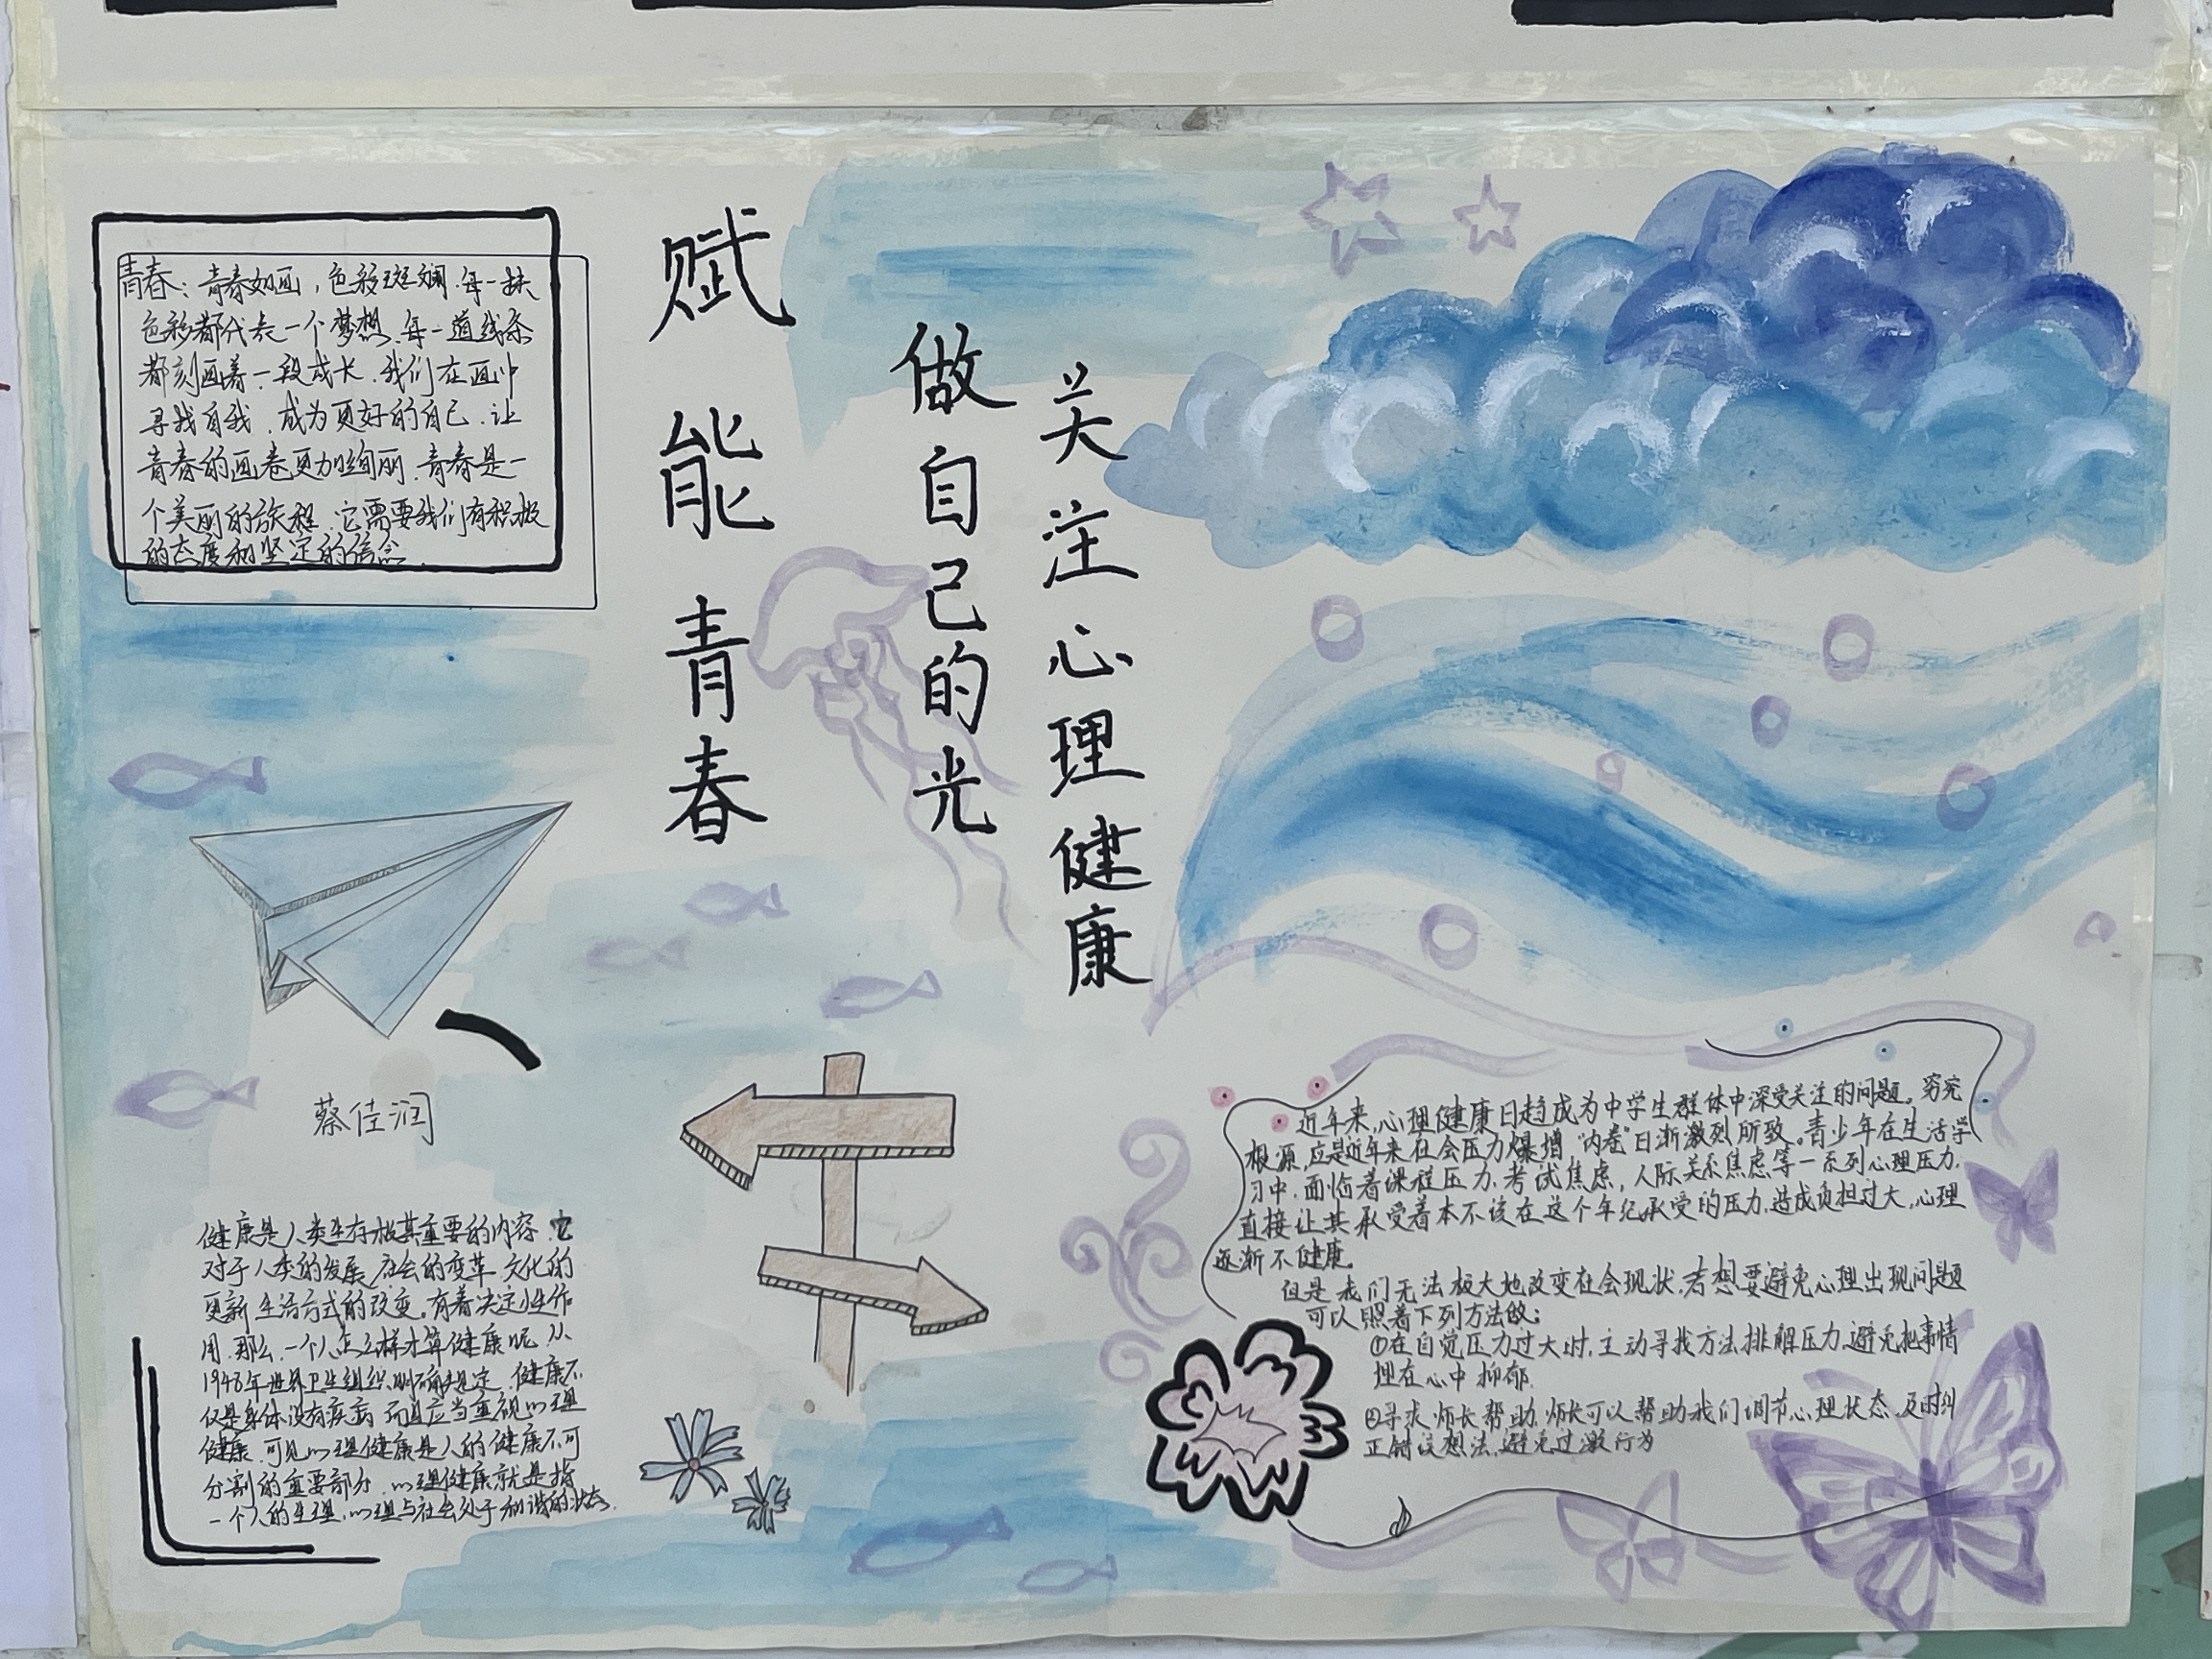 赋能青春
做自己的光
关注心理健康
青春：青春如画，色彩斑斓.每一抹
色彩都代表一个梦想.每一道线条
都刻画着一段成长.我们在画中
寻找自我.成为更好的自己.让
青春的画卷更加绚丽.青春是一
个美丽的旅程.它需要我们有积极
的态度和坚定的信念.
蔡佳润
健康是人类生存极其重要的内容.它
对于人类的发展.社会的变革.文化的
更新生活方式的改变。有着决定性作
用.那么.一个人怎么样才算健康呢.从
1948年世界卫生组织明确规定.健康不
仅是身体没有疾病而且应当重视心理
健康.可见心理健康是人的健康不可
分割的重要部分.心理健康就是指
一个人的生理.心理与社会处于和谐的状态.
近年来,心理健康日趋成为中学生群体中深受关注的问题。穷究
根源,应是近年来社会压力爆增"内卷"日渐激烈所致。青少年在生活学
习中.面临着课程压力.考试焦虑,人际关系焦虑等一系列心理压力.
直接让其承受着本不该在这个年纪承受的压力.造成负担过大,心理
逐渐不健康。
但是我们无法极大地改变社会现状.若想要避免心理出现问题
可以照着下列方法做:
①在自觉压力过大时.主动寻找方法排解压力.避免把事情
埋在心中抑郁.
②寻求师长帮助.师长可以帮助我们调节心理状态.及时纠
正错误想法.避免过激行为